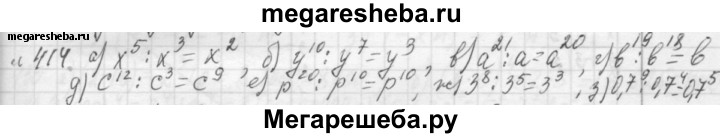 megaresheba.ru
№ 414. а) x⁵ : x³ = x², б) y¹⁰ : y⁷ = y³, в) a²¹ : a = a²⁰, г) в¹⁹ : в¹⁸ = в
д) c¹² : c³ = c⁹, е) p²⁰ : p¹⁰ = p¹⁰, ж) 3⁸ : 3⁵ = 3³, з) 0,7⁹ : 0,7⁴ = 0,7⁵
Мегарешеба.ру